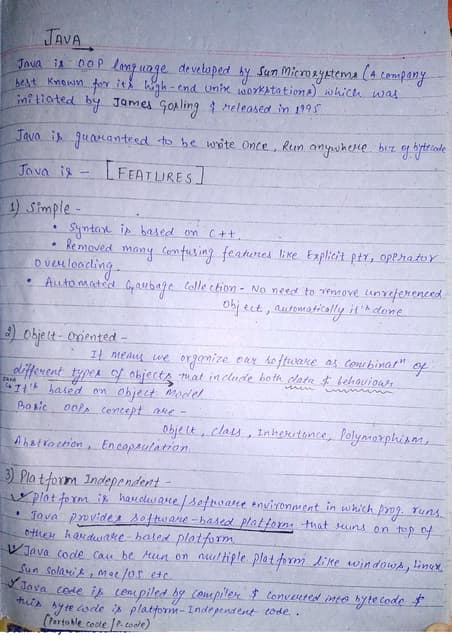 JAVA
Java is OOP language developed by Sun Microsystems (A company
best known for its high-end Unix workstations) which was
initiated by James Gosling & released in 1995
Java is guaranteed to be write once, Run anywhere bcz of bytecode
Java is - [FEATURES]
1) Simple -
• Syntax is based on C++
• Removed many confusing features like Explicit ptr, operator
overloading.
• Automated Garbage Collection - No need to remove unreferenced
Object, automatically it's done
2) Object-Oriented -
It means we organize our software as combinatⁿ of
different types of objects that include both data & behaviour
It is based on object Model
Basic OOPs concept are -
Object, class, Inheritance, Polymorphism,
Abstraction, Encapsulation
3) Platform Independent -
Platform is hardware/software environment in which prog. runs
• Java provides software-based platform that runs on top of
other hardware-based platform
Java code can be run on multiple platform like windows, Linux
Sun solaris, mac/os etc
Java code is compiled by compiler & converted into bytecode &
this bytecode is platform-Independent code.
(Portable code / P.code)